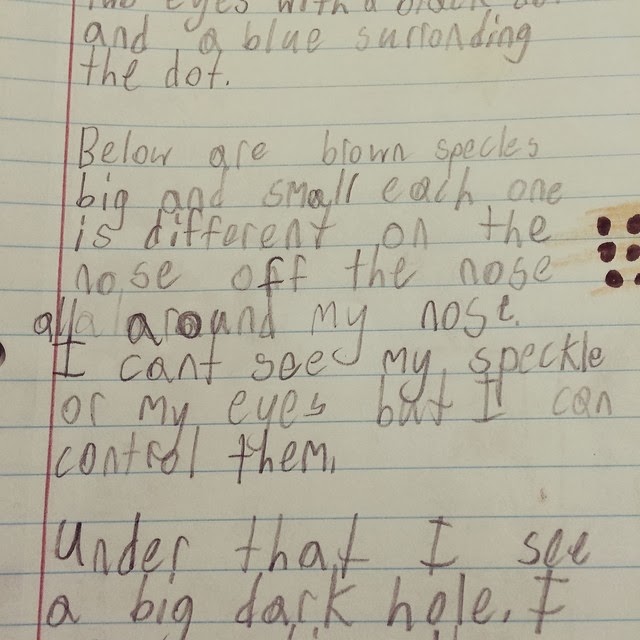 two eyes with a black dot
and a blue surronding
the dot.
Below are brown specles
big and small each one
is different on the
nose off the nose
all around my nose.
I cant see my speckle
or my eyes but I can
control them.
Under that I see
a big dark hole. I